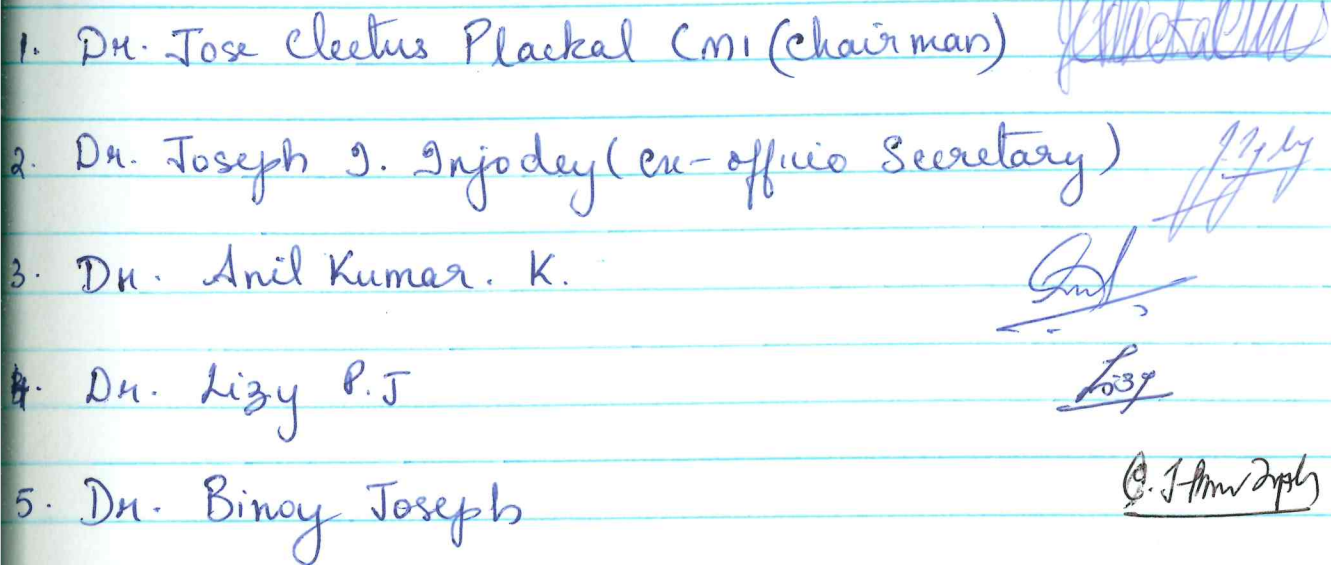 1. Dr. Jose Cleetus Plackal CMI (Chairman)
2. Dr. Joseph I. Injodey (ex-officio Secretary)
3. Dr. Anil Kumar. K.
4. Dr. Lizy P.J Lizy
5. Dr. Binoy Joseph